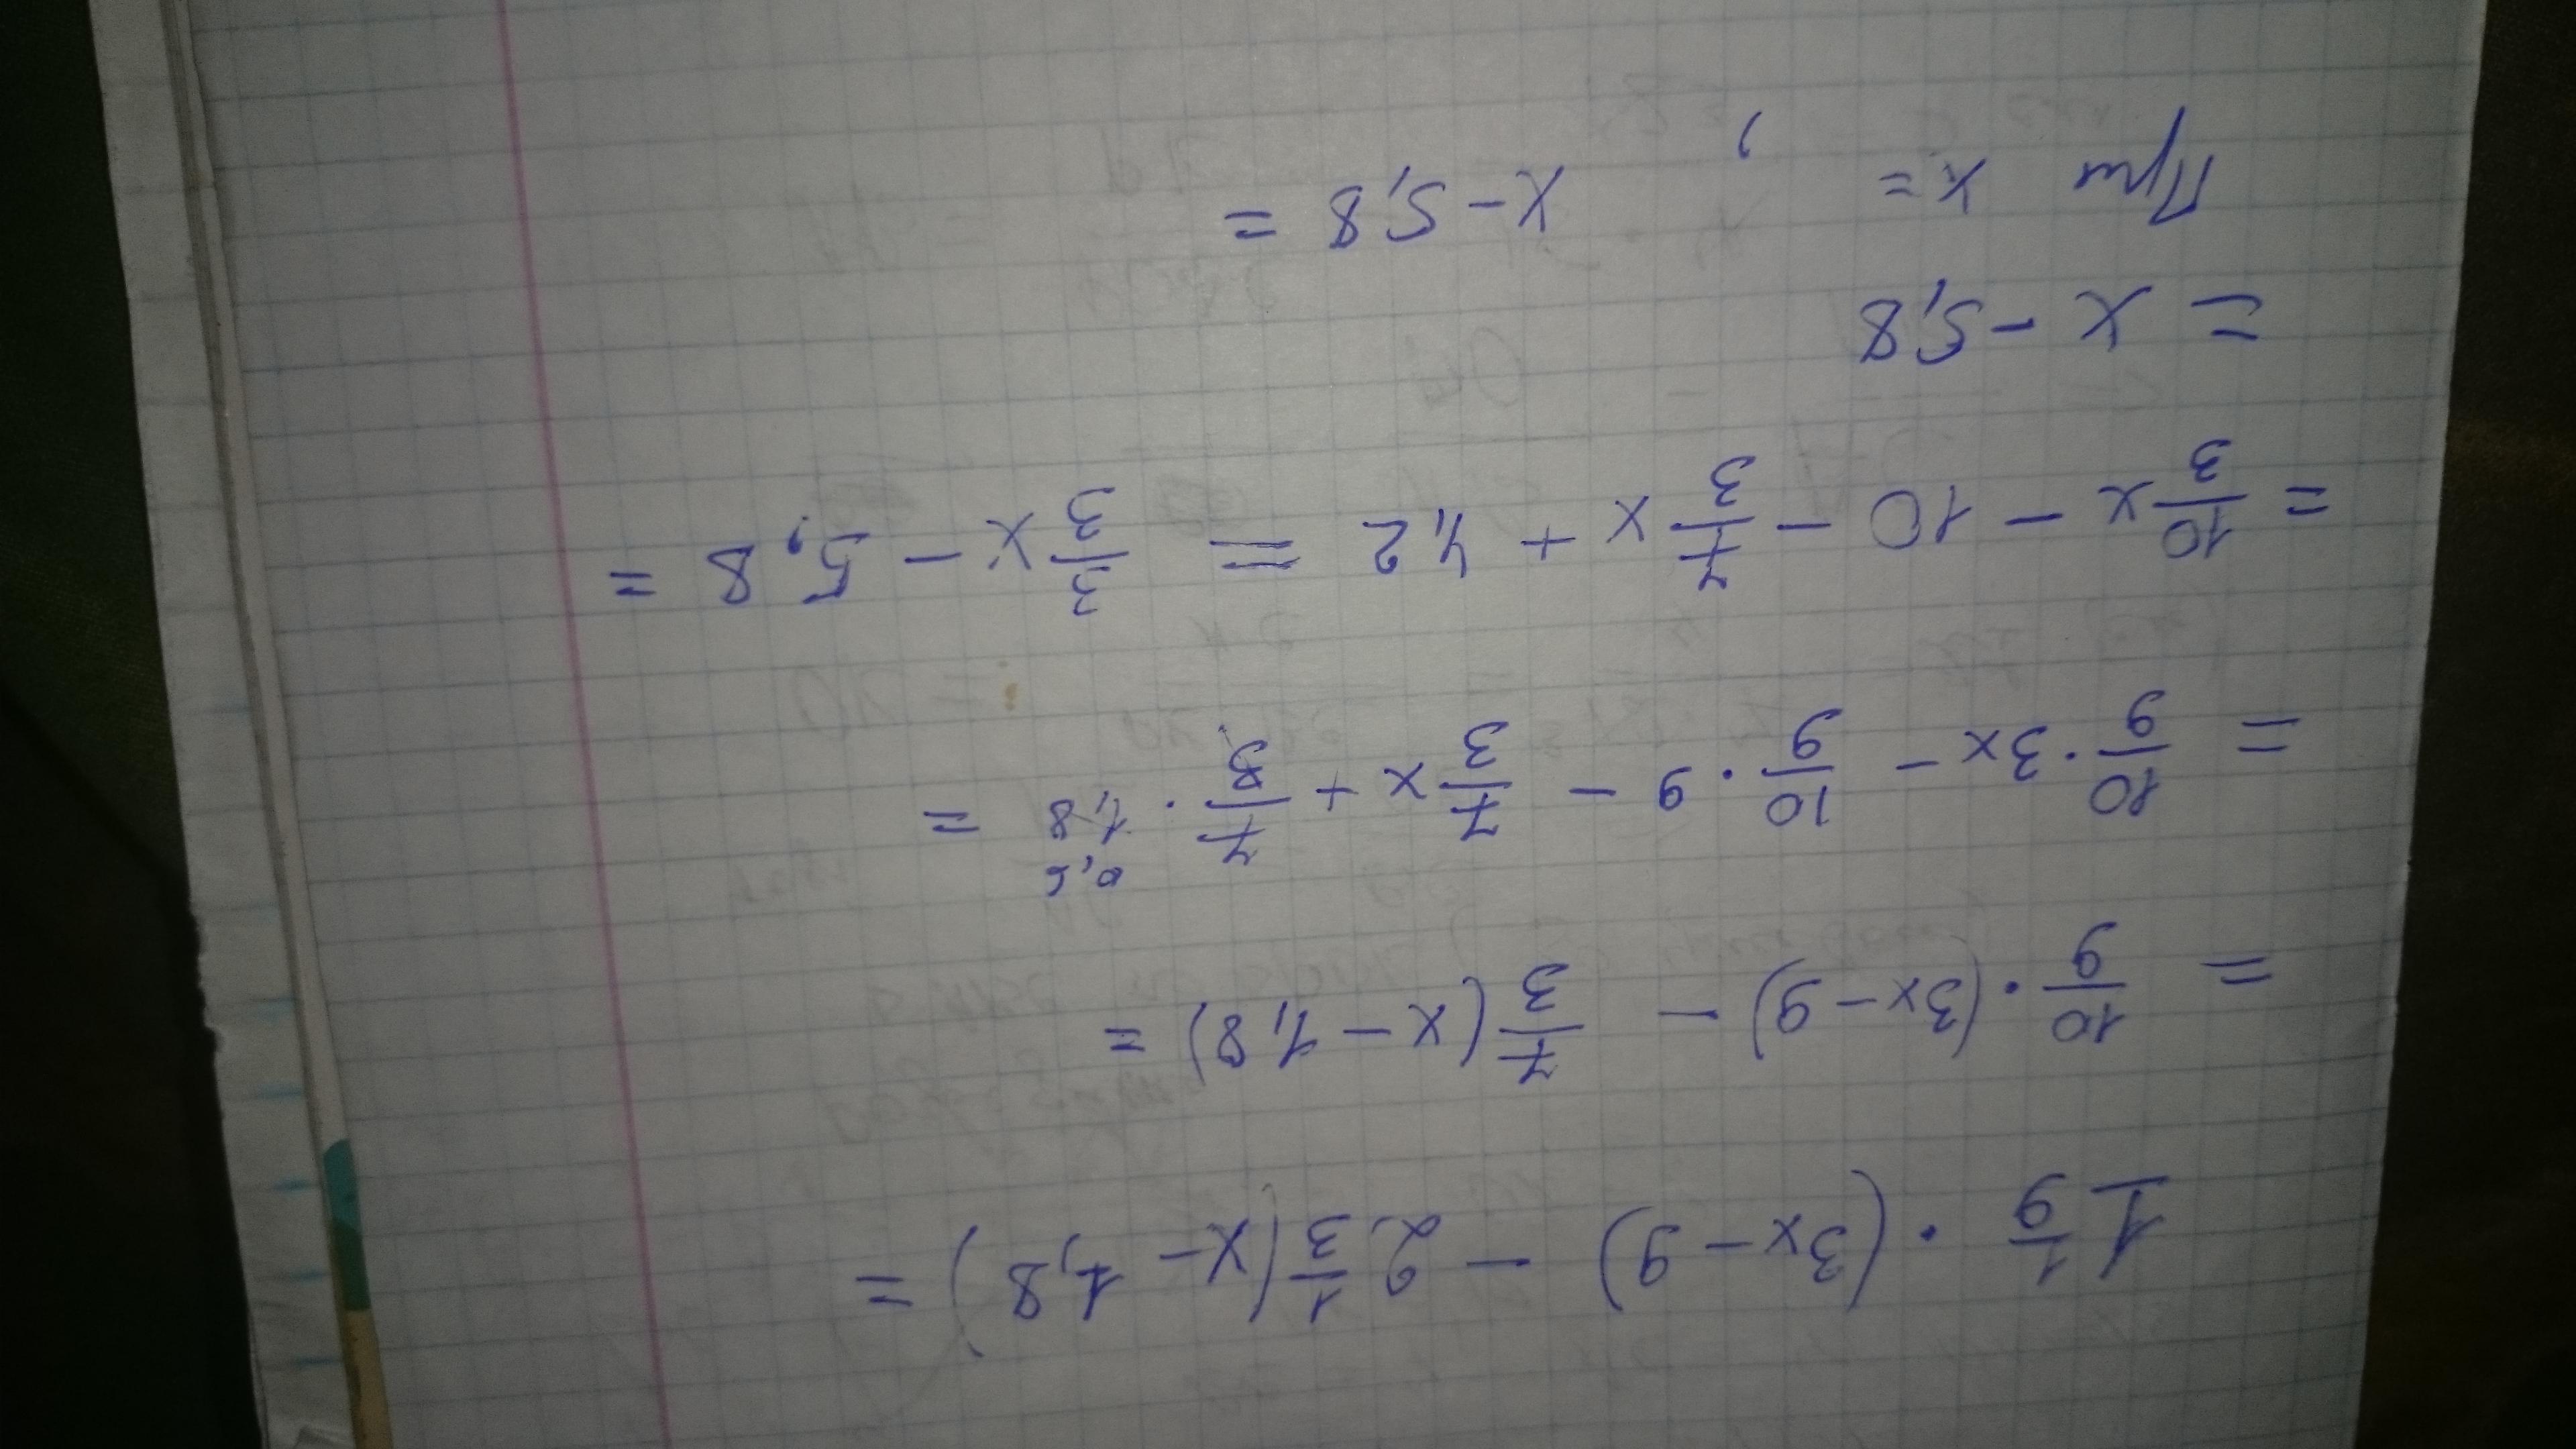 1 1/9 · (3x - 9) - 2 1/3 (x - 1,8) =
= 10/9 · (3x - 9) - 7/3 (x - 1,8) =
= 10/9 · 3x - 10/9 · 9 - 7/3 x + 7/3 · 1,8 0,6 =
= 10/3 x - 10 - 7/3 x + 4,2 = 3/3 x - 5,8 =
= x - 5,8
При x =      ,      x - 5,8 =